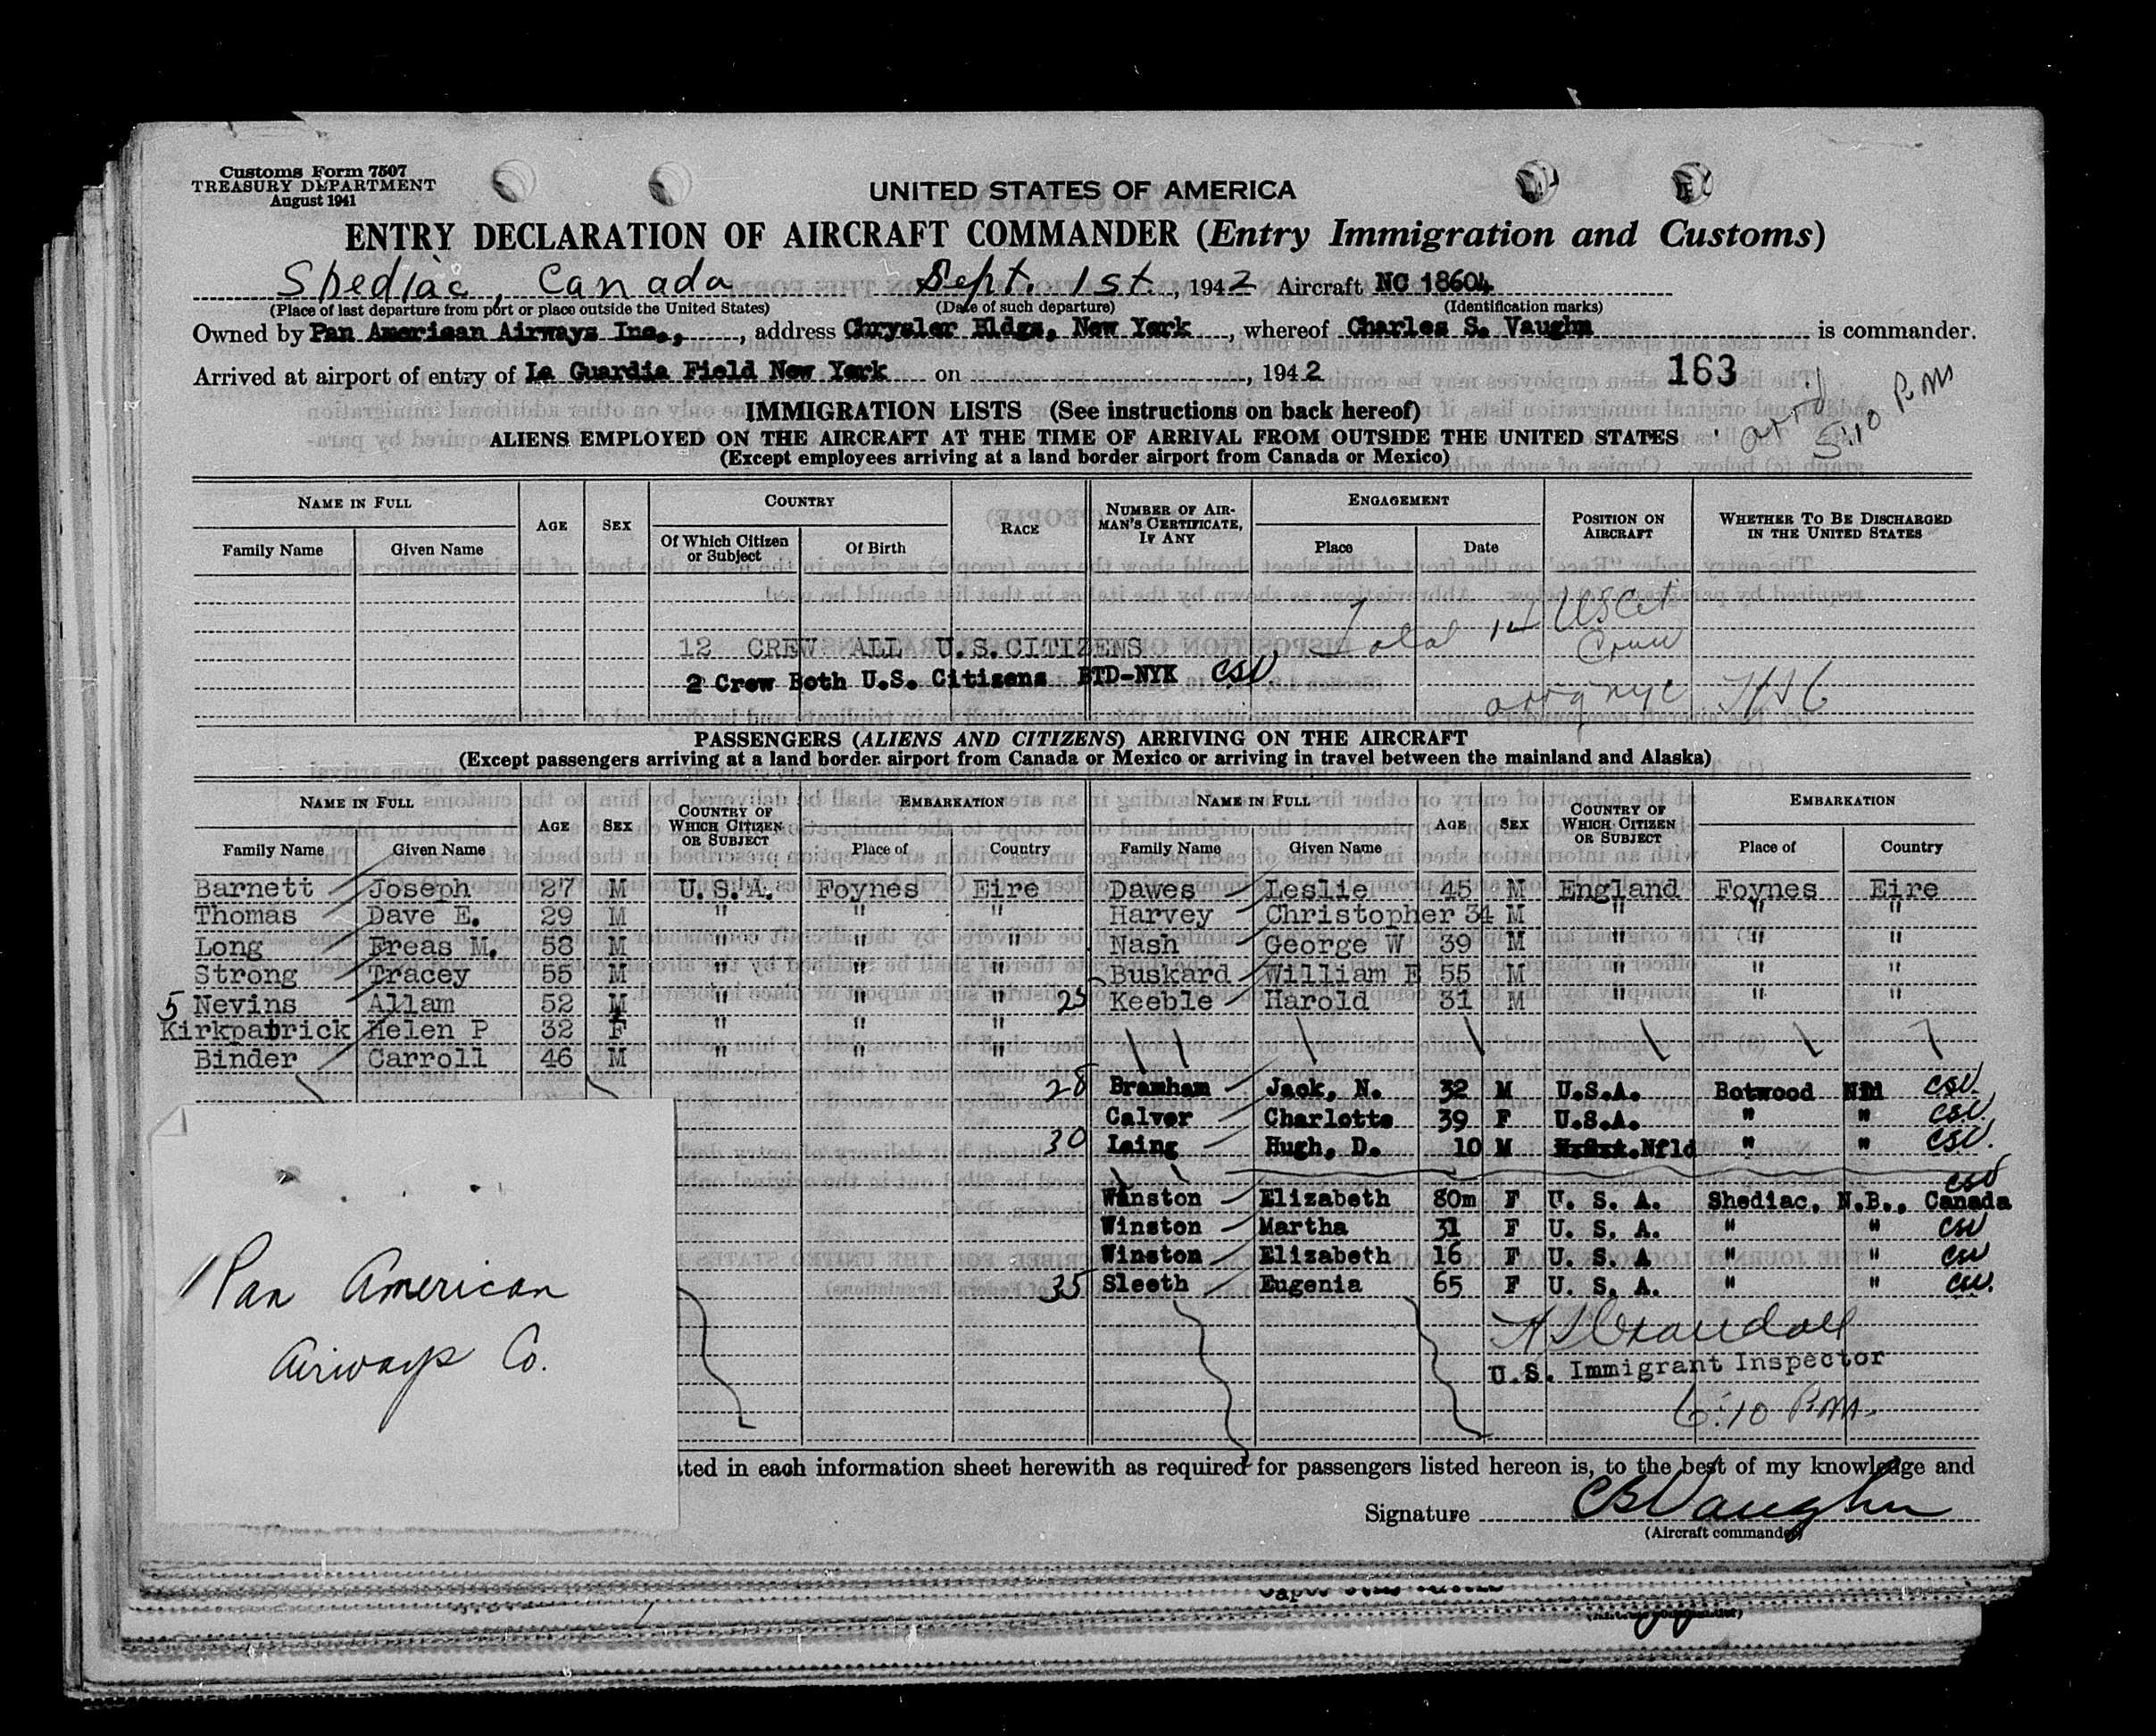 Customs Form 7507
TREASURY DEPARTMENT
August 1941
UNITED STATES OF AMERICA
ENTRY DECLARATION OF AIRCRAFT COMMANDER (Entry Immigration and Customs)
Shediac, Canada Sept. 1st, 1942 Aircraft NC 18604
(Place of last departure from port or place outside the United States) (Date of such departure) (Identification marks)
Owned by Pan American Airways Inc., address Chrysler Bldg, New York, whereof Charles S. Vaughn is commander.
Arrived at airport of entry of La Guardia Field New York on , 1942 163
arr'd 5:10 P.M
IMMIGRATION LISTS (See instructions on back hereof)
ALIENS EMPLOYED ON THE AIRCRAFT AT THE TIME OF ARRIVAL FROM OUTSIDE THE UNITED STATES
(Except employees arriving at a land border airport from Canada or Mexico)
NAME IN FULL AGE SEX COUNTRY RACE NUMBER OF AIRMAN'S CERTIFICATE, IF ANY ENGAGEMENT POSITION ON AIRCRAFT WHETHER TO BE DISCHARGED IN THE UNITED STATES
Family Name Given Name Of Which Citizen or Subject Of Birth Place Date
12 CREW ALL U.S.CITIZENS Total 14 US Cit Crew
2 Crew Both U.S. Citizens BTD-NYK CSV
arrg nyc
PASSENGERS (ALIENS AND CITIZENS) ARRIVING ON THE AIRCRAFT
(Except passengers arriving at a land border airport from Canada or Mexico or arriving in travel between the mainland and Alaska)
NAME IN FULL AGE SEX COUNTRY OF WHICH CITIZEN OR SUBJECT EMBARKATION NAME IN FULL AGE SEX COUNTRY OF WHICH CITIZEN OR SUBJECT EMBARKATION
Family Name Given Name Place of Country Family Name Given Name Place of Country
Barnett Joseph 27 M U.S.A. Foynes Eire Dawes Leslie 45 M England Foynes Eire
Thomas Dave E. 29 M " " " Harvey Christopher 34 M " " "
Long Freas M. 58 M " " " Nash George W 39 M " " "
Strong Tracey 55 M " " " Buskard William E 55 M " " "
5 Nevins Allam 52 M " " " 25 Keeble Harold 31 M " " "
Kirkpatrick Helen P 32 F " " "
Binder Carroll 46 M " " "
28 Bramham Jack, N. 32 M U.S.A. Botwood Nfld CSV
Calver Charlotte 39 F U.S.A. " " CSV.
30 Laing Hugh, D. 10 M Nfld " " CSV.
CSV
Winston Elizabeth 80m F U. S. A. Shediac, N.B., Canada
Winston Martha 31 F U. S. A. " " CSV
Winston Elizabeth 16 F U. S. A " " CSV
35 Sleeth Eugenia 65 F U. S. A. " " CSV.
Pan American
Airways Co.
H S Crandall
U.S. Immigrant Inspector
6:10 P.M.
ated in each information sheet herewith as required for passengers listed hereon is, to the best of my knowledge and
Signature CSVaughn
(Aircraft commander)